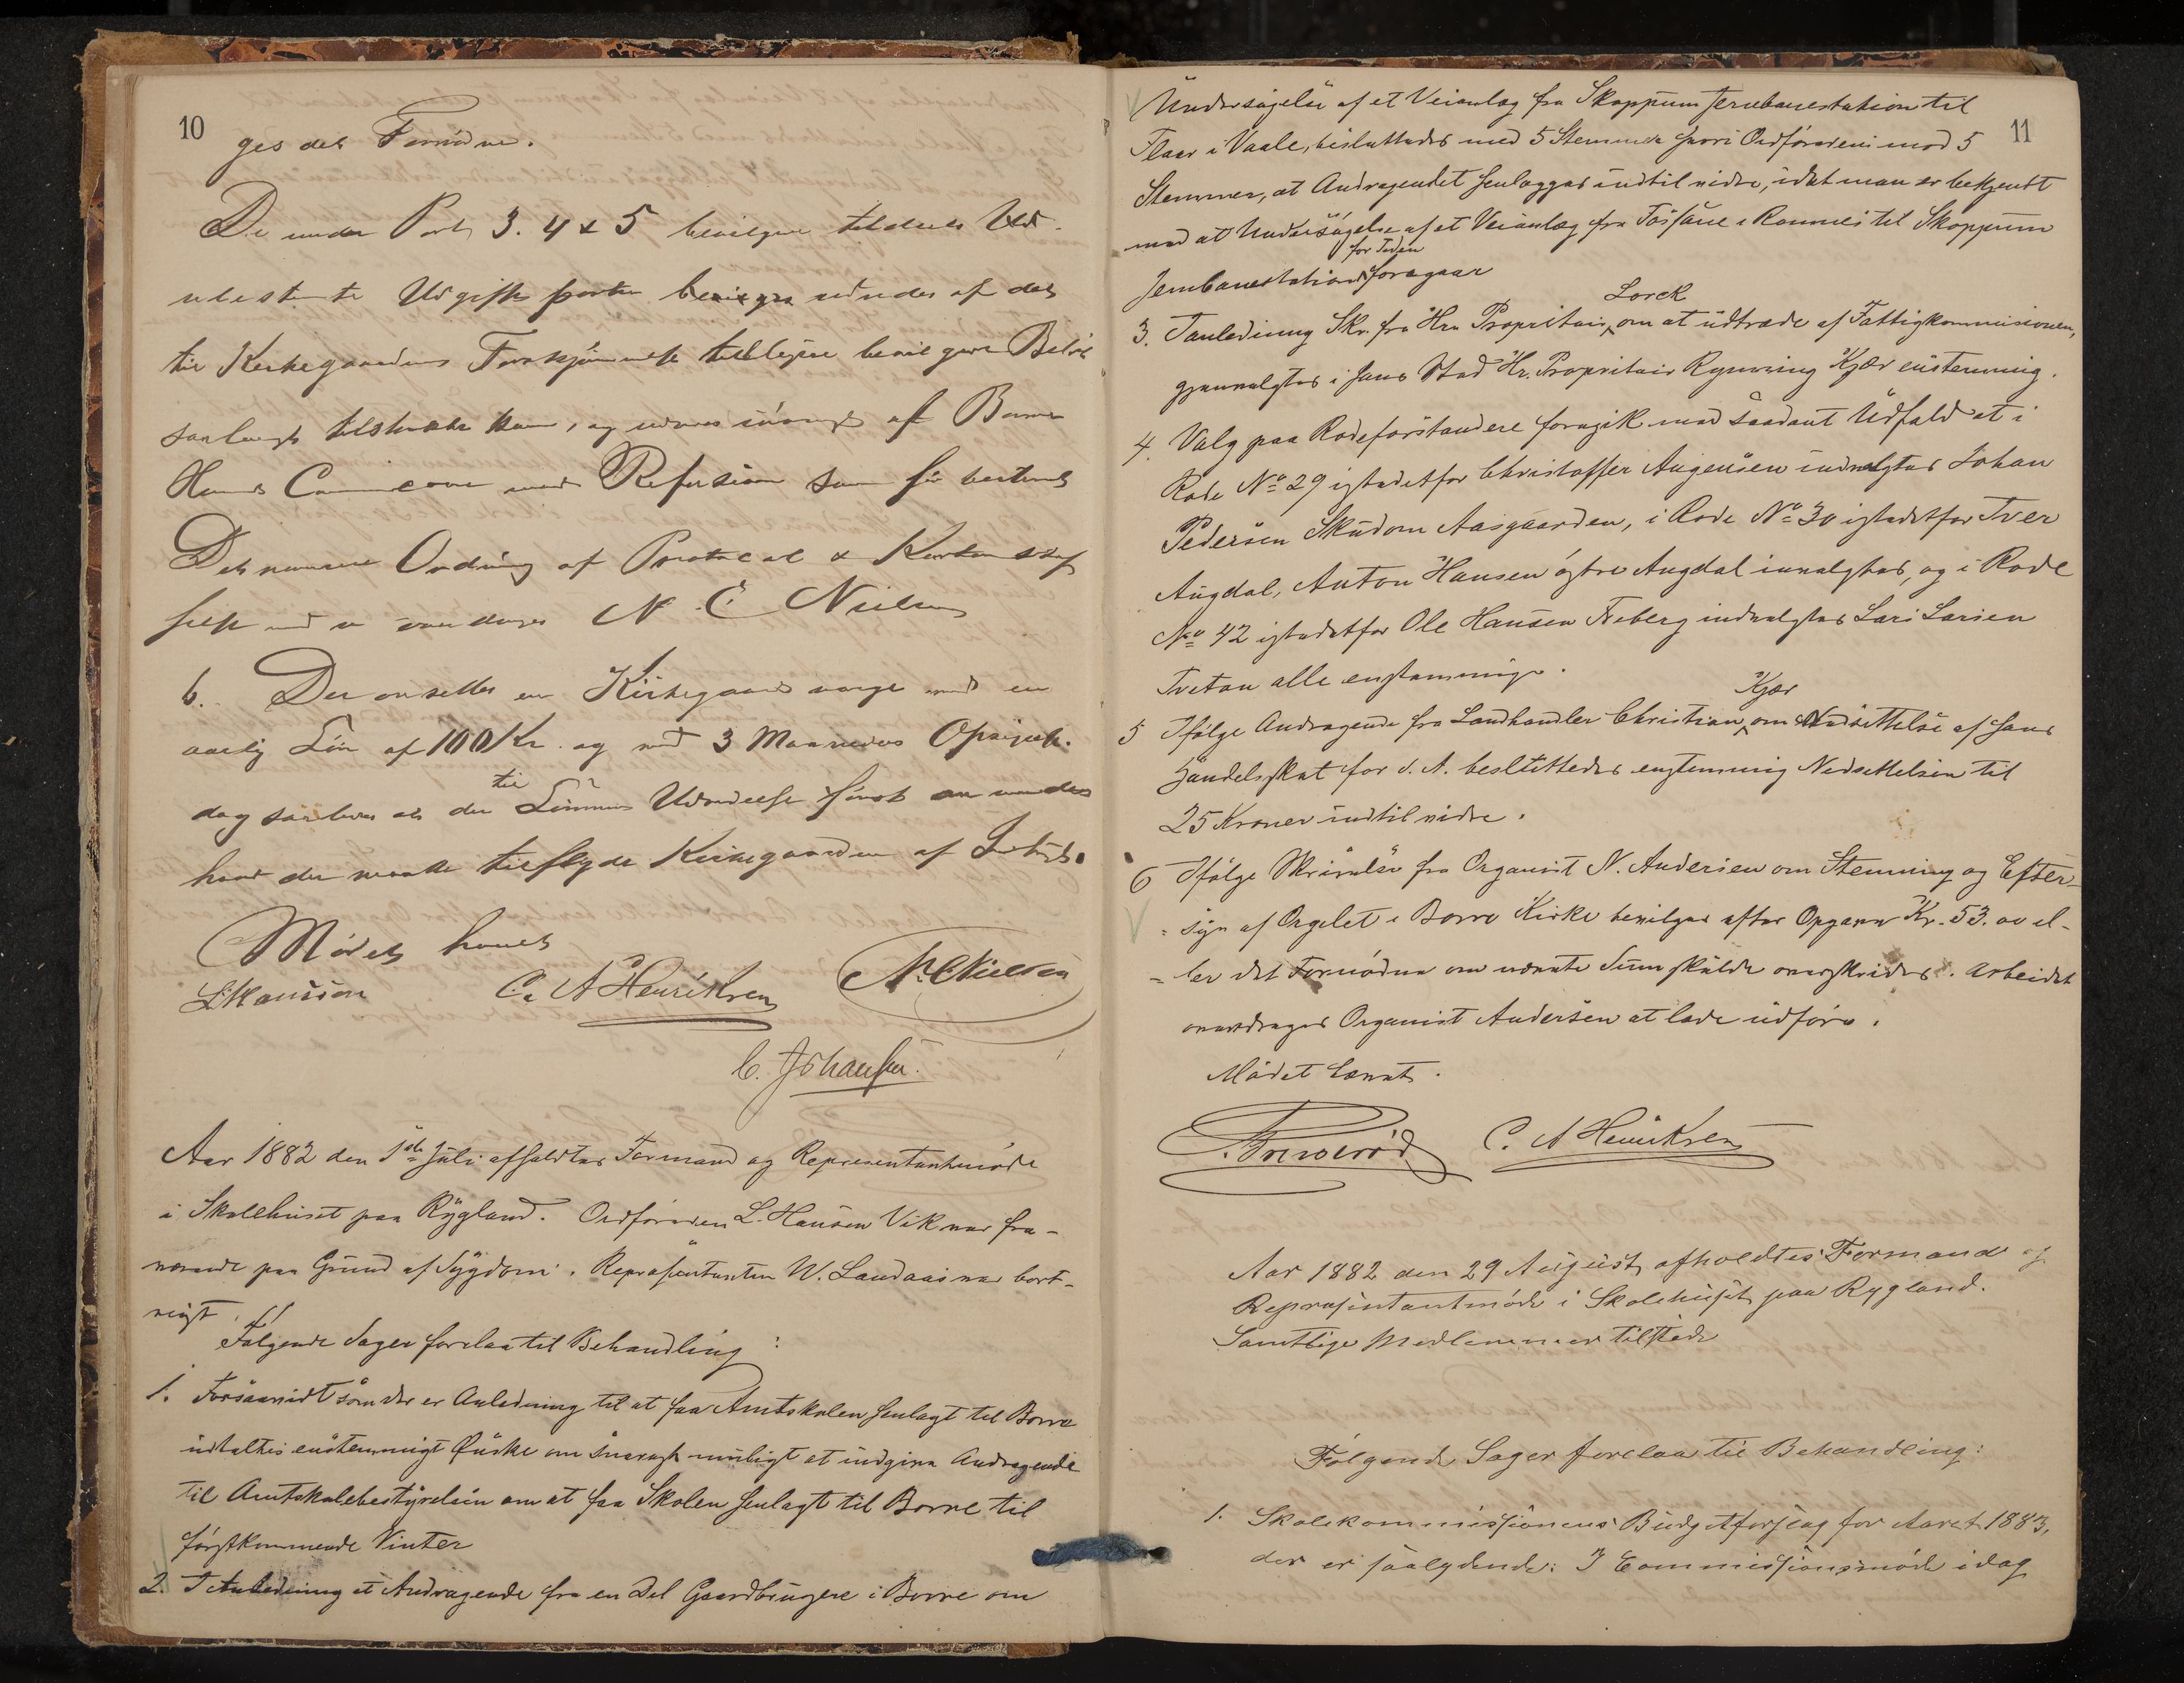 10
ges det Fornødne.
De under Post 3. 4 & 5
Udgifts poster udredes af det
til Kirkegaardens Forskjønnelse tidligere bevilgede Beløb
saalangt tilstrække kan, og af Borre
Refusion som før bestemt
Ordning af Protocol &
N. C. Nielsen
6. Der ansettes en Kirkegaardsværge med en
aarlig Løn af 100 Kr. og med 3 Maaneders Opsigelse.
dog saaledes at der til Lønnens Udredelse først anvendes
hvad der maatte tilflyde Kirkegaarden af Indtægt.
Mødet hævet
L. Hansson C. A Henriksen N. C Nielsen
C. Johansen.
Aar 1882 den 1ste Juli afholdtes Formand og Representantmøde
i Skolehuset paa Rygland. Ordføreren L. Hanson Vik var fra-
værende paa Grund af Sygdom. Repræsentanten W. Landaas var bort-
reist.
Følgende Sager forelaa til Behandling:
1. Forsaavidt som der er Anledning til at faa Amtskolen henlagt til Borre
udtaltes enstemmigt Ønske om snarest muligt at indgive Andragende
til Amtskolebestyrelsen om at faa Skolen henlagt til Borre til
førstkommende Vinter
2. I Anledning et Andragende fra en Del Gaardbrugere i Borre om
11
Undersøgelse af et Veianlæg fra Skoppum Jernbanestation til
i Vaale, besluttedes med 5 Stemmer hvori Ordførerens mod 5
Stemmer, at Andragendet henlægges indtil videre, idet man er bekjendt
med at Undersøgelse af et Veianlæg fra i Ramnes til Skoppum
for Tiden
Jernbanestation foregaar
Lorck
3. I Anledning Skr. fra Hrr Propritair om at udtræde af Fattigkommissionen,
gjenvalgtes i hans Sted Hr. Propritair Rynning Kjær enstemmig.
4. Valg paa Rodeforstandere foregik med saadant Udfald at i
Rode No 29 istedetfor Christoffer Augensen indvalgtes Johan
Pedersen Skudom Aasgaarden, i Rode No 30 istedetfor Iver
Augdal, Anton Hansen østre Augdal invalgtes, og i Rode
No 42 istedetfor Ole Hansen Freberg indvalgtes Lars Larsen
Tveten alle enstemmige.
Kjær
5 Ifølge Andragende fra Landhandler Christian om Nedsettelse af hans
Handelsskat for d. A. besluttedes enstemmig Nedsettelsen til
25 Kroner indtil videre.
6 Ifølge Skrivelse fra Organist N. Andersen om Stemning og Efter-
syn af Orgelet i Borre Kirke bevilges efter Opgave Kr. 53.00 el-
ler det Fornødne om nævnte Sum skulde overskrides. Arbeidet
overdrages Organist Andersen at lade udføre.
Mødet hævet.
C. A Henriksen
Aar 1882 den 29 August afholdtes Formand og
Repræsentantmøde i Skolehuset paa Rygland.
Samtlige Medlemmer tilstede
Følgende Sager forelaa til Behandling:
1. Skolekommissionens Budgetforslag for Aaret 1883,
der er saalydende: I Commissionsmøde idag